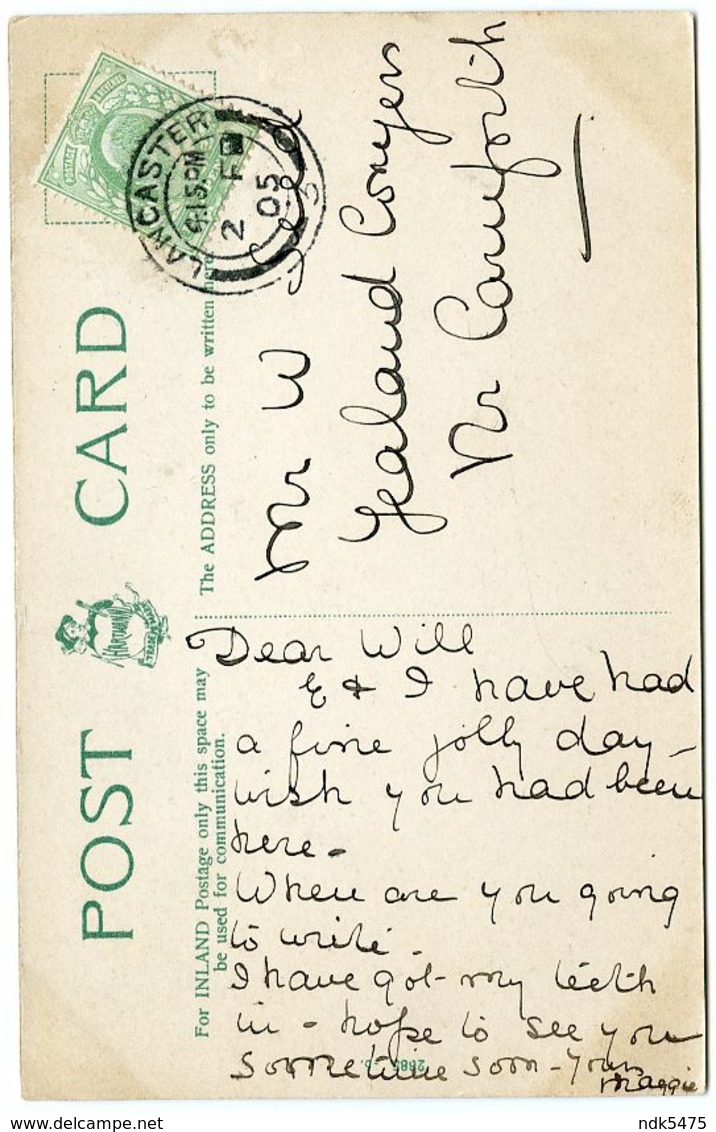 POST CARD
HARTMANN
TRADE MARK
For INLAND Postage only this space may
be used for communication.
The ADDRESS only to be written here
POSTAGE
REVENUE
LANCASTER
9.15 PM
2 FE
05
Mr W
Yealand Conyers
Nr Carnforth
Dear Will
E & I have had
a fine jolly day –
wish you had been
here –
When are you going
to write.
I have got my teeth
in – hope to see you
sometime soon – Yours
Maggie
ndk5475